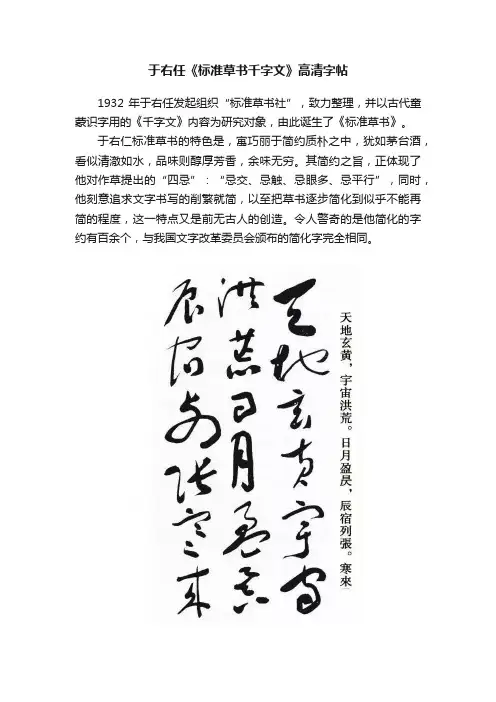 于右任《标准草书千字文》高清字帖
1932年于右任发起组织“标准草书社”，致力整理，并以古代童
蒙识字用的《千字文》内容为研究对象，由此诞生了《标准草书》。
于右仁标准草书的特色是，寓巧丽于简约质朴之中，犹如茅台酒，
看似清澈如水，品味则醇厚芳香，余味无穷。其简约之旨，正体现了
他对作草提出的“四忌”：“忌交、忌触、忌眼多、忌平行”，同时，
他刻意追求文字书写的削繁就简，以至把草书逐步简化到似乎不能再
简的程度，这一特点又是前无古人的创造。令人警奇的是他简化的字
约有百余个，与我国文字改革委员会颁布的简化字完全相同。
天地玄黄，宇宙洪荒。日月盈昃，辰宿列張。寒來
天地玄黄宇宙
洪荒日月盈昃
辰宿列張寒來